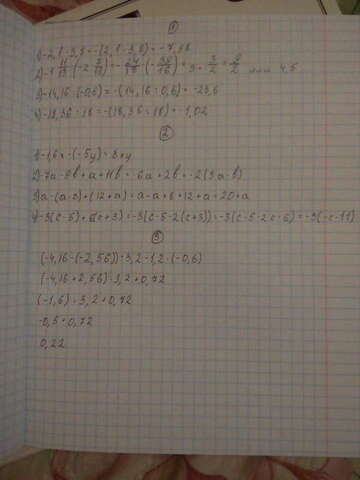 ①
1) -2,1 · 3,8 = -(2,1 · 3,8) = -7,98
2) -1 11/13 · (-2 7/16) = -24/13 · (-39/16) = 3 · 3/2 = 9/2 или 4,5
3) -14,16 : (-0,6) = -(14,16 : 0,6) = -23,6
4) -18,36 : 18 = -(18,36 : 18) = -1,02
②
1) -1,6x · (-5y) = 8xy
2) -7a - 9b + a + 11b = -6a + 2b = -2(3a - b)
3) a - (a - 8) + (12 + a) = a - a + 8 + 12 + a = 20 + a
4) -3(c - 5) + 6(c + 3) = -3(c - 5 - 2(c + 3)) = -3(c - 5 - 2c - 6) = -3(-c - 11)
③
(-4,16 - (-2,56)) : 3,2 - 1,2 · (-0,6)
(-4,16 + 2,56) : 3,2 + 0,72
(-1,6) : 3,2 + 0,72
-0,5 + 0,72
0,22